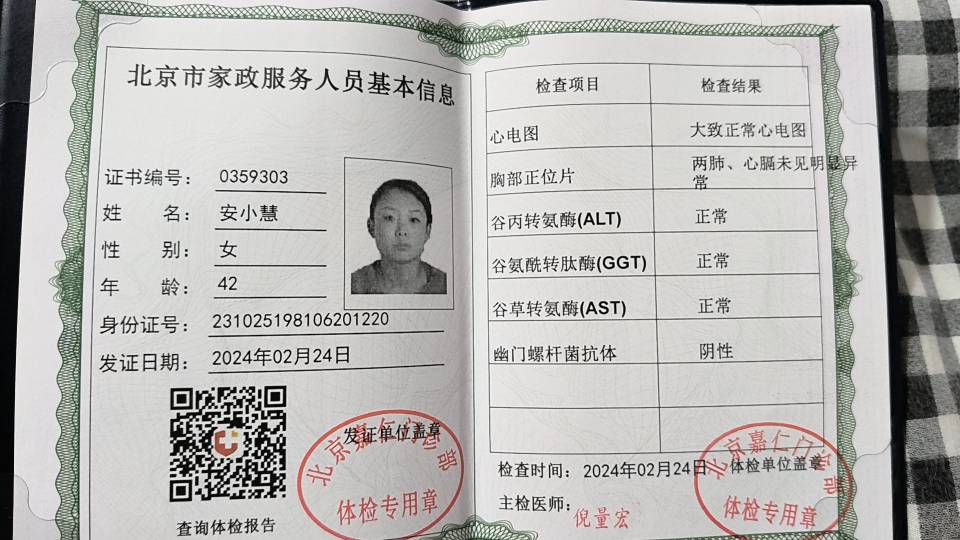 北京市家政服务人员基本信息
证书编号： 0359303
姓 名： 安小慧
性 别： 女
年 龄： 42
身份证号： 231025198106201220
发证日期： 2024年02月24日
发证单位盖章
北京嘉仁门诊部
体检专用章
查询体检报告
检查项目 检查结果
心电图 大致正常心电图
胸部正位片 两肺、心膈未见明显异
常
谷丙转氨酶(ALT) 正常
谷氨酰转肽酶(GGT) 正常
谷草转氨酶(AST) 正常
幽门螺杆菌抗体 阴性
检查时间： 2024年02月24日 体检单位盖章
主检医师： 倪量宏
北京嘉仁门诊部
体检专用章